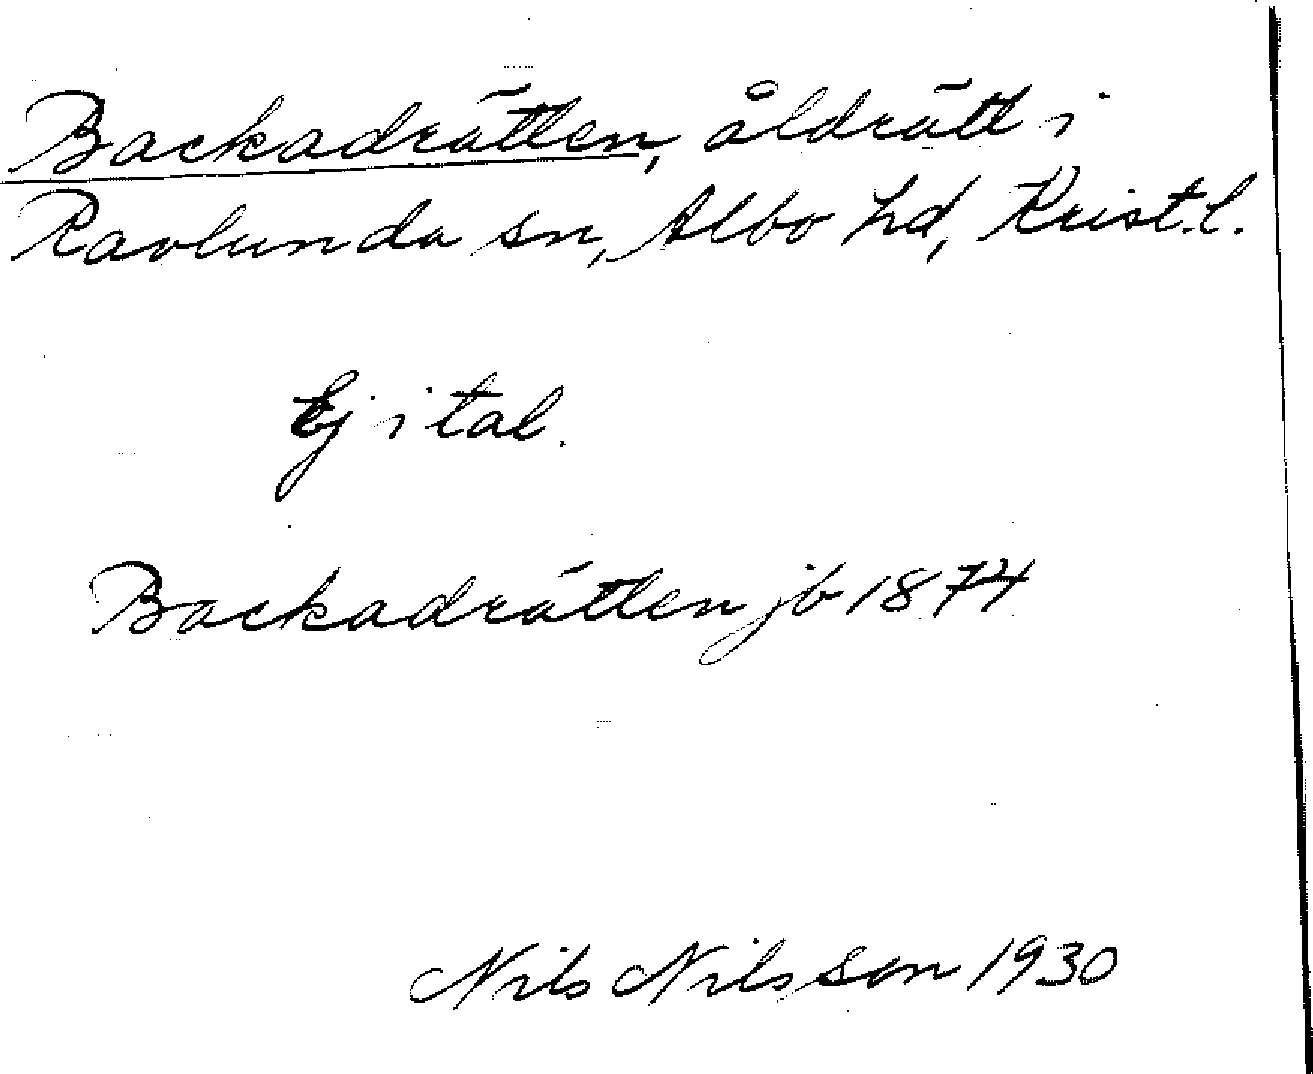 Backadrätten, åldrätt i
Ravlunda sn, Albo hd, Krist.l.
Ej i tal.
Backadrätten jb 1874
Nils Nilsson 1930